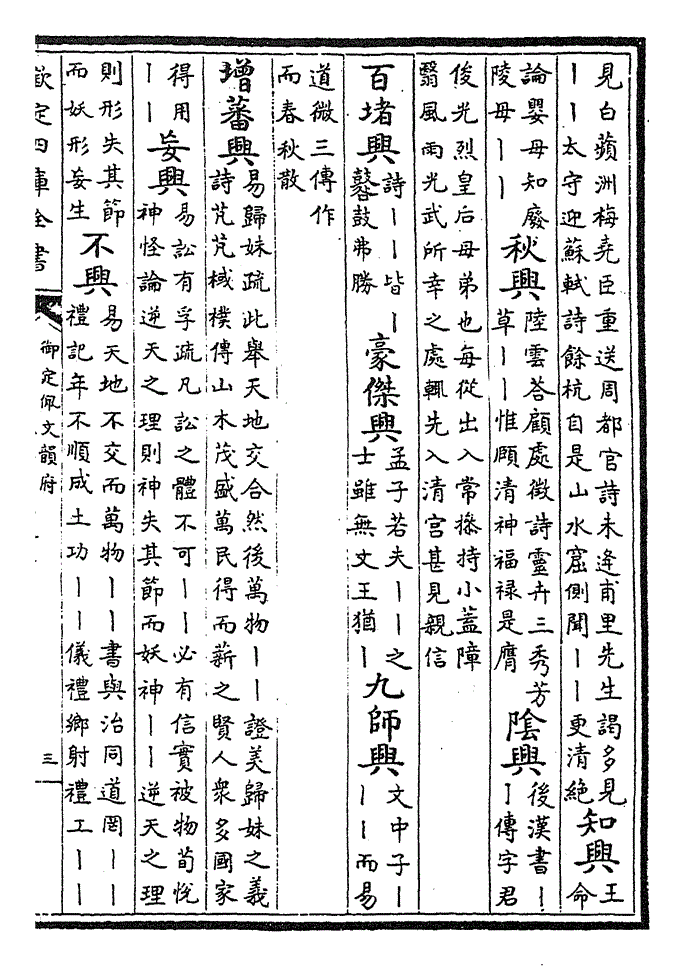 見白蘋洲梅堯臣重送周都官詩未逢甫里先生謁多見
丨丨太守迎蘇軾詩餘杭自是山水窟側聞丨丨更清絶
知興
王
命
論嬰母知廢
陵母丨丨
秋興
陸雲荅顧處微詩靈卉三秀芳
草丨丨惟頤清神福禄是膺
陰興
後漢書丨
丨傳字君
俊光烈皇后母弟也每從出入常操持小蓋障
翳風雨光武所幸之處輒先入清宫甚見親信
百堵興
詩丨丨皆丨
鼛鼓弗勝
豪傑興
孟子若夫丨丨之
士雖無文王猶丨
九師興
文中子丨
丨丨而易
道微三傳作
而春秋散
增蕃興
易歸妹疏此舉天地交合然後萬物丨丨證美歸妹之義
詩芃芃棫樸傳山木茂盛萬民得而薪之賢人衆多國家
得用
丨丨
妄興
易訟有孚疏凡訟之體不可丨丨必有信實被物荀悦
神怪論逆天之理則神失其節而妖神丨丨逆天之理
則形失其節
而妖形妄生
不興
易天地不交而萬物丨丨書與治同道罔丨丨
禮記年不順成土功丨丨儀禮鄉射禮工丨丨
欽定四庫全書
御定佩文韻府
三